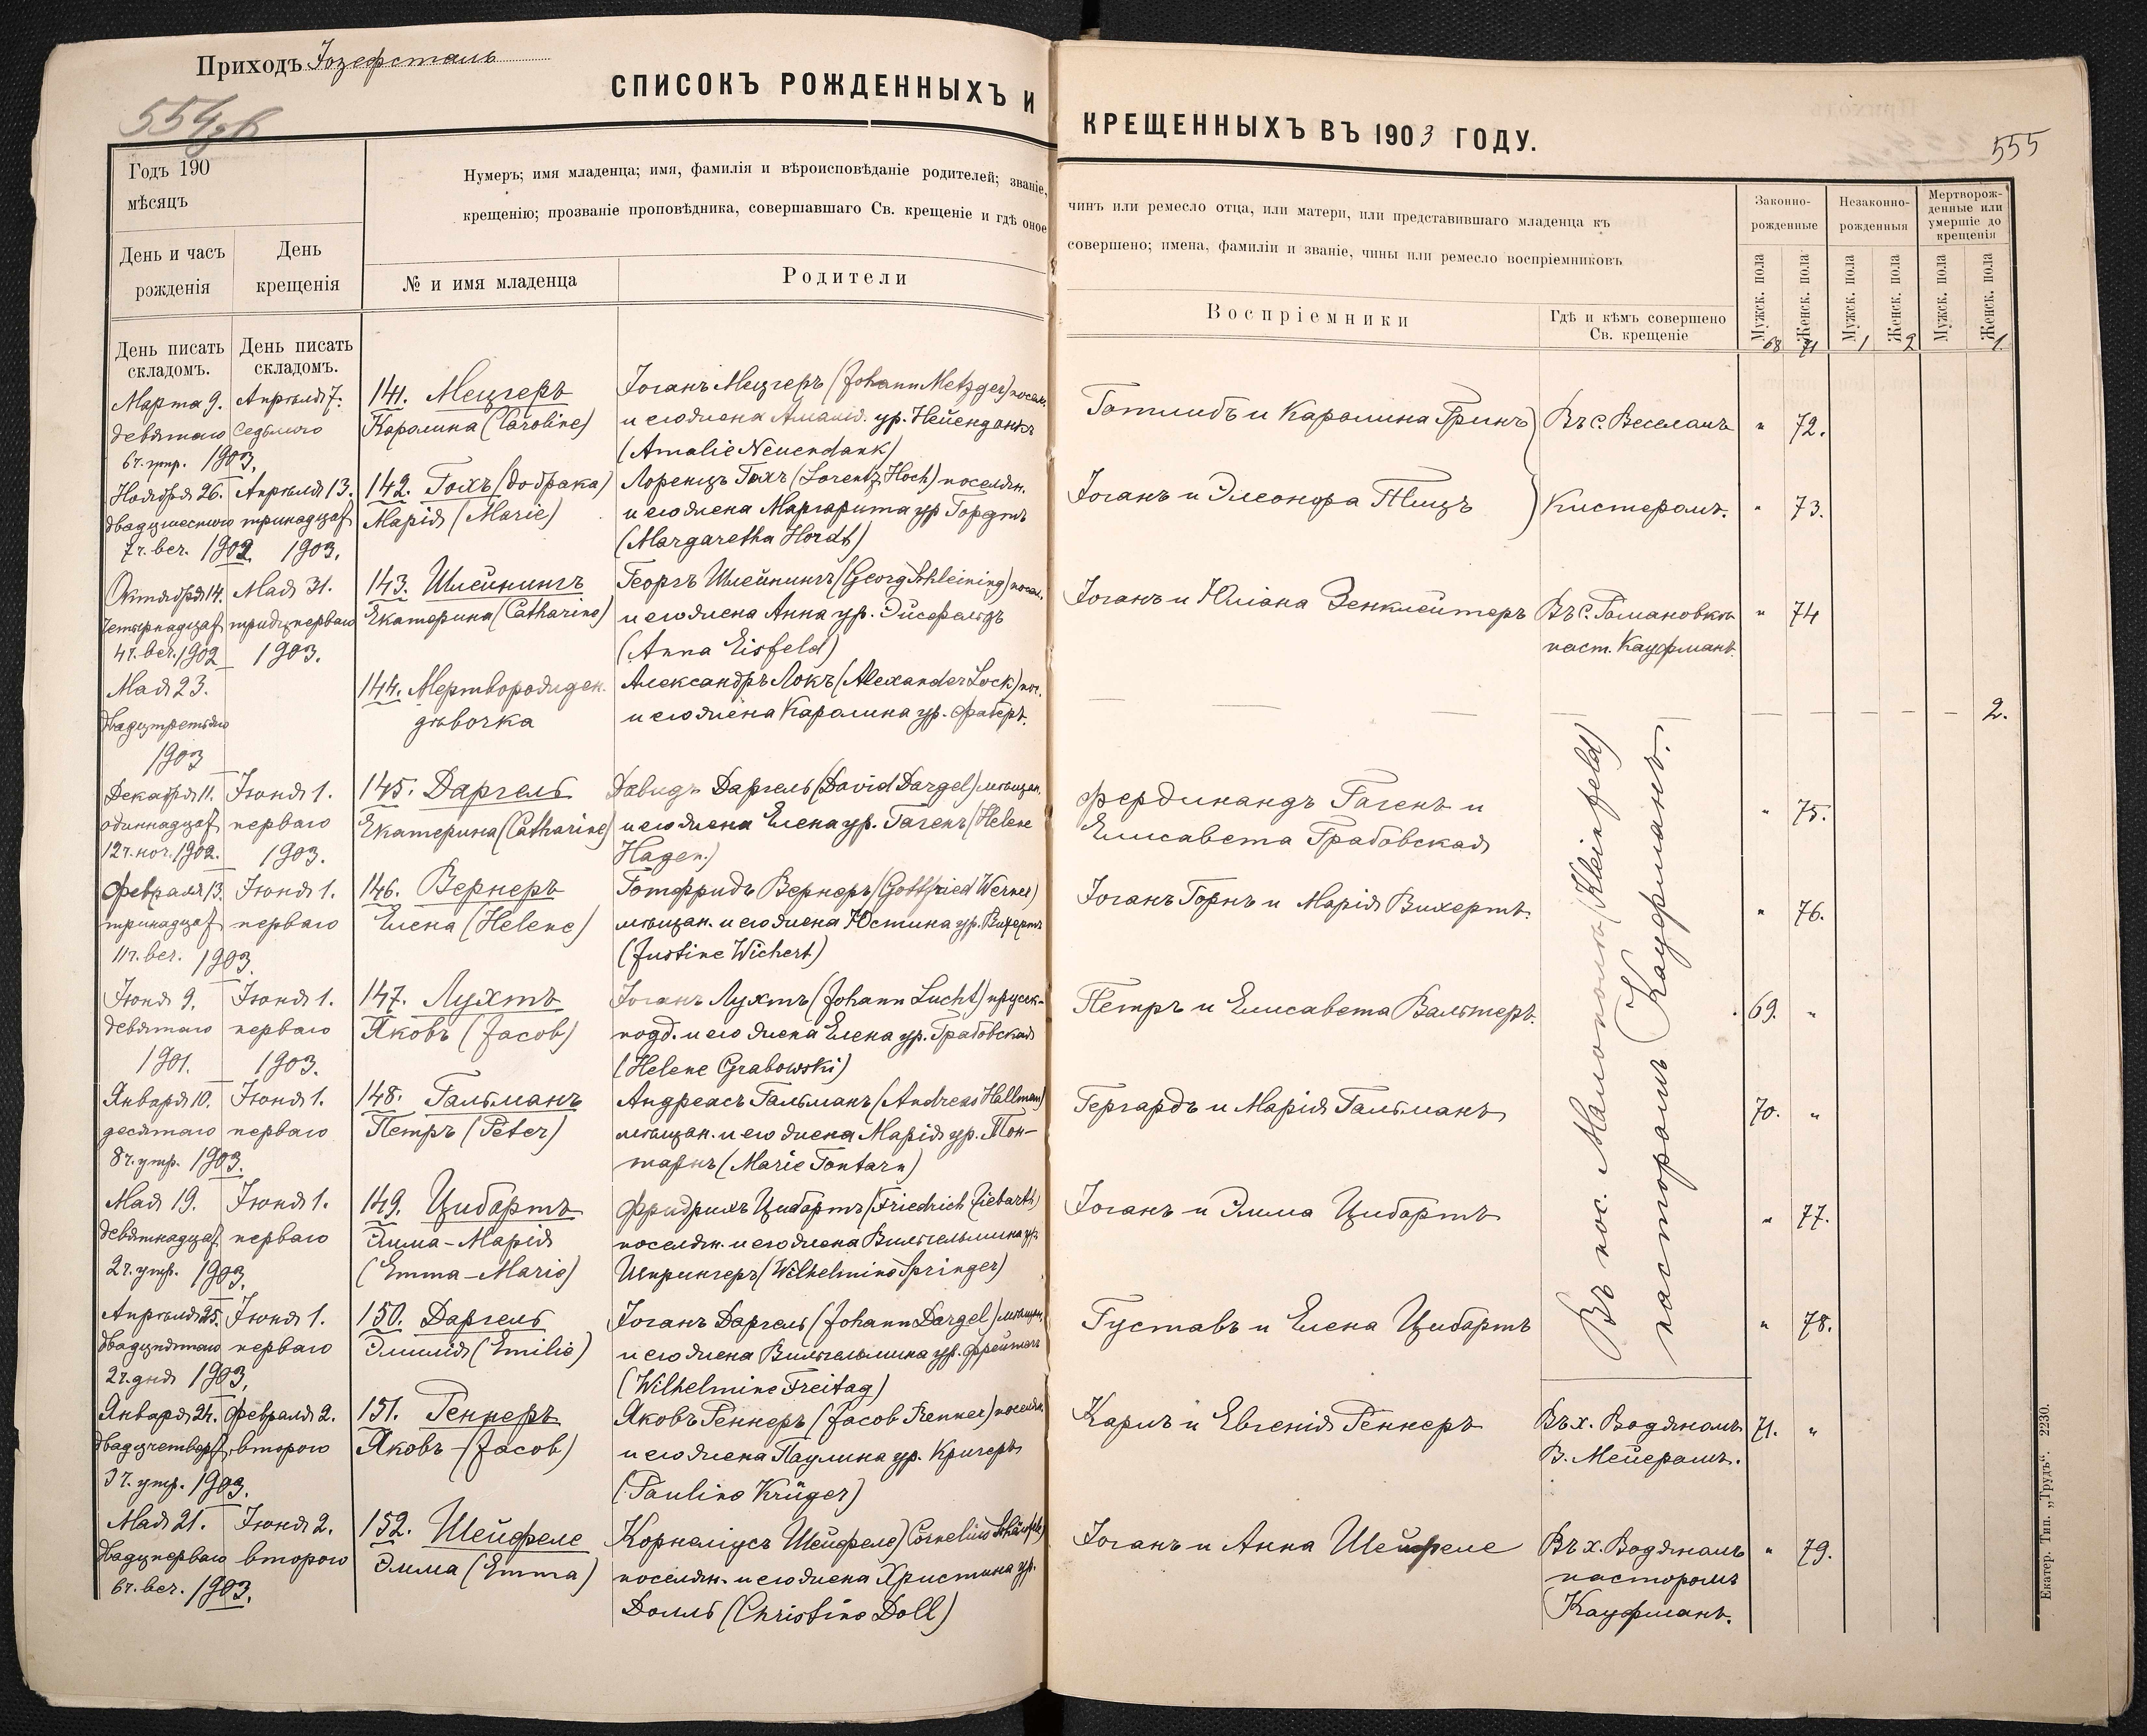 Приходъ Іозефсталь
554 об
СПИСОКЪ РОЖДЕННЫХЪ И
Годъ 190
мѣсяцъ
День и часъ рожденія
День крещенія
Нумеръ; имя младенца; имя, фамилія и вѣроисповѣданіе родителей; званіе,
крещенію; прозваніе проповѣдника, совершавшаго Св. крещеніе и гдѣ оное
№ и имя младенца
Родители
День писать складомъ.
День писать складомъ.
Марта 9. Апрѣля 7. 141. Мецгеръ Іоганъ Мецгеръ (Johann Metzger) посел.
девятаго седьмого Каролина (Caroline) и его жена Амалія ур. Нейенданкъ
6 ч. утр. 1903. (Amalie Neuendank)
Ноября 26. Апрѣля 13. 142. Гохъ (добрака) Лоренцъ Гохъ (Lorentz Hoch) поселян.
двадцшестого тринадцат Марія (Marie) и его жена Маргарита ур. Гордтъ
7 ч. веч. 1902 1903. (Margaretha Hordt)
Октября 14. Мая 31. 143. Шлейнингъ Георгъ Шлейнингъ (Georg Schleining) посел.
четырнадцат тридцперваго Екатерина (Catharine) и его жена Анна ур. Эйсфельдъ
4 ч. веч. 1902 1903. (Anna Eisfeld)
Мая 23. 144. Мертворожден. Александръ Локъ (Alexander Lock) пос.
двадцтретьяго дѣвочка и его жена Каролина ур. Фаберъ.
1903
Декабря 11. Іюня 1. 145. Даргель Давидъ Даргель (David Dargel) мѣщан.
одиннадцат перваго Екатерина (Catharine) и его жена Елена ур. Гагенъ (Helene
12 ч. ноч. 1902. 1903. Hagen.)
Февраля 13. Іюня 1. 146. Вернеръ Готфридъ Вернеръ (Gottfried Werner)
тринадцат перваго Елена (Helene) мѣщан. и его жена Юстина ур. Вихертъ
11 ч. веч. 1903. (Justine Wichert)
Іюня 9. Іюня 1. 147. Лухтъ Іоганъ Лухтъ (Johann Lucht) прусск-
девятаго перваго Яковъ (Jacob) подд. и его жена Елена ур. Грабовская
1901. 1903. (Helene Grabowski)
Января 10. Іюня 1. 148. Гальманъ Андреасъ Гальманъ (Andreas Hallman)
десятаго перваго Петръ (Peter) мѣщан. и его жена Марія ур. Тон-
8 ч. утр. 1903. тарнъ (Marie Tontarn)
Мая 19. Іюня 1. 149. Цибартъ Фридрихъ Цибартъ (Friedrich Ziebarth)
девятнадцат. перваго Эмма-Марія поселян. и его жена Вильгельмина ур.
2 ч. утр. 1903. (Emma-Marie) Шпрингеръ (Wilhelmine Springer)
Апрѣля 25. Іюня 1. 150. Даргель Іоганъ Даргель (Johann Dargel) мѣщан.
двадцпятаго перваго Эмилія (Emilie) и его жена Вильгельмина ур. Фрейтагъ
2 ч. дня 1903. (Wilhelmine Freitag)
Января 24. Февраля 2. 151. Реннеръ Яковъ Реннеръ (Jacob Renner) поселян.
двадцчетверт. второго Яковъ - (Jacob) и его жена Паулина ур. Кригеръ
3 ч. утр. 1903. (Pauline Krüger)
Мая 21. Іюня 2. 152. Шейфеле Корнеліусъ Шейфеле (Cornelius Schäufele)
двадцперваго второго Эмма (Emma) поселян. и его жена Христина ур.
6 ч. веч. 1903. Долль (Christine Doll)
КРЕЩЕННЫХЪ ВЪ 1903 ГОДУ.
555
чинъ или ремесло отца, или матери, или представившаго младенца къ
совершено; имена, фамиліи и званіе, чины или ремесло воспріемниковъ
Воспріемники
Гдѣ и кѣмъ совершено
Св. крещеніе
Законно-рожденные
Незаконно-рожденныя
Мертворож-
денные или
умершіе до
крещенія
Мужск. пола
Женск. пола
Мужск. пола
Женск. пола
Мужск. пола
Женск. пола
68 71 1 2 1
Готлибъ и Каролина Гринъ Въ с. Веселомъ " 72.
Іоганъ и Элеонора Тицъ Кистеромъ. " 73.
Іоганъ и Юліана Зенклейтеръ Въ с. Романовкѣ " 74
паст. Кауфманъ.
— — — — — — — — — 2.
Фердинандъ Гагенъ и " 75.
Елисавета Грабовская
Іоганъ Горнъ и Марія Вихертъ. " 76.
Петръ и Елисавета Вальтеръ. 69. "
Гергардъ и Марія Гальманъ 70. "
Іоганъ и Эмма Цибартъ " 77.
Густавъ и Елена Цибартъ " 78.
Въ пос. Малополье (Kleinfeld)
пасторомъ Кауфманъ.
Карлъ и Евгенія Реннеръ Въ х. Водяномъ 71. "
В. Мейеромъ.
Іоганъ и Анна Шейфеле Въ х. Водяномъ " 79.
пасторомъ
Кауфманъ.
Екатер. Тип. „Трудъ". 2230.